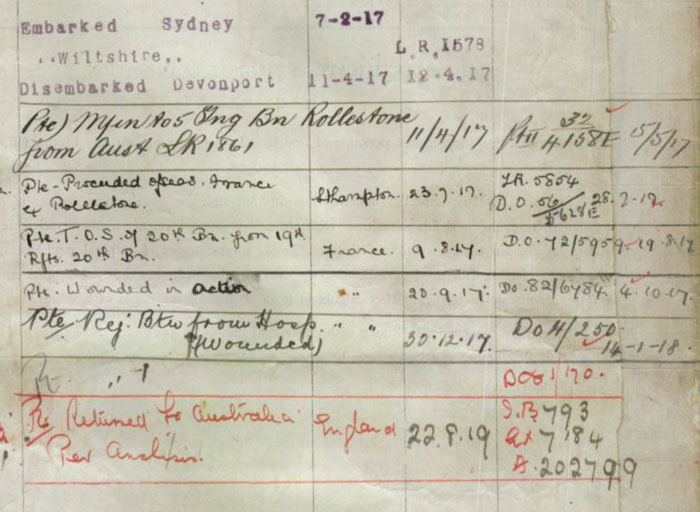 Embarked Sydney 7-2-17
"Wiltshire" L.R. 1578
Disembarked Devonport 11-4-17 12.4.17
Pte) M/in to 5 Tng Bn Rollestone 32
from Aust LR 1861 11/4/17 Pt II 4158E 15/5/17
Pte. Proceeded o/seas. France LR. 5854
ex Rollestone. S'Hampton. 23.7.17. D.O. 56/ 28.7.17.
5628E
Pte. T.O.S. of 20th Bn. from 19th
Rfts. 20th Bn. France. 9.8.17. D.O. 72/5959 19.8.17
Pte. Wounded in action " 20.9.17. Do. 82/6784 4.10.17
Pte Rej: Btn from Hosp. " " 30.12.17 Do 4/250.
(Wounded) 14-1-18.
Pte. " "
Pte Returned to Australia England 22.8.19 S.B 793
Per Anchises. 7184
A. 202799